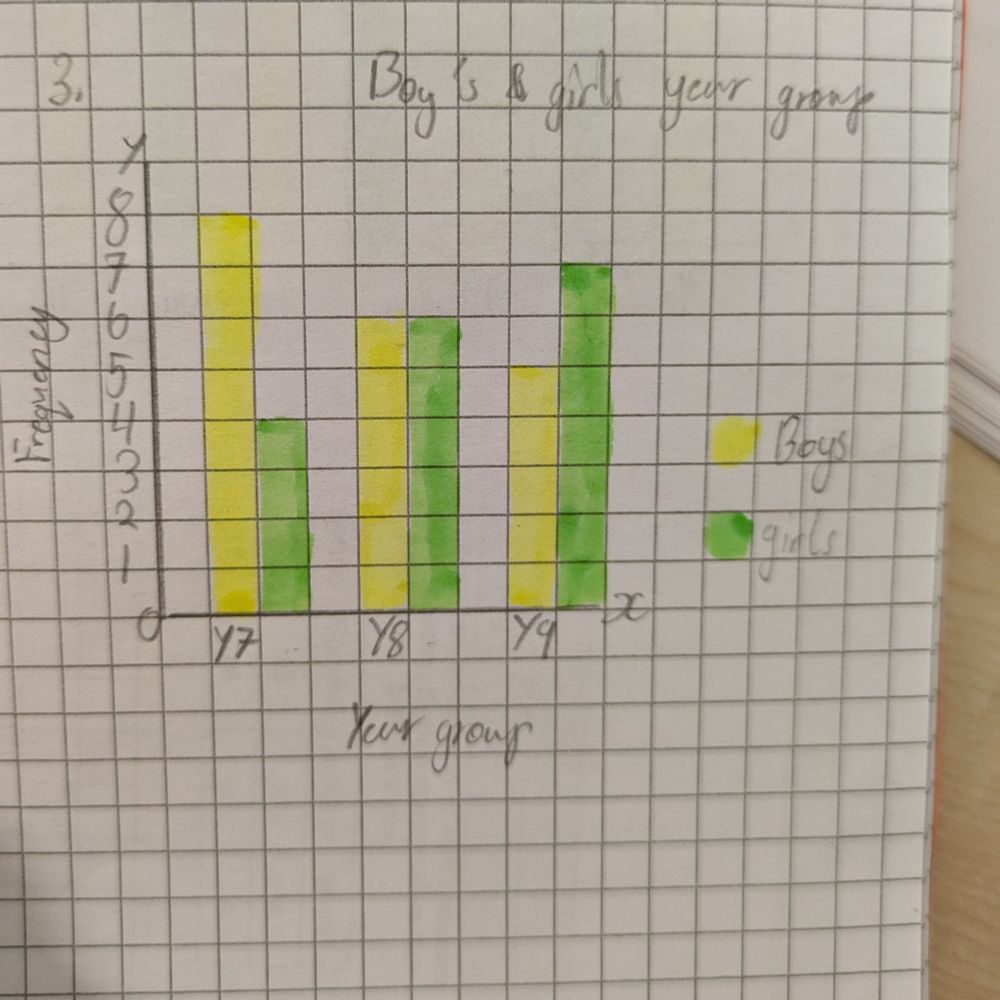 3.
Boy's & girls year group
Y
8
7
6
5
4
3
2
1
0
Frequency
Y7 Y8 Y9
x
Year group
Boys
girls